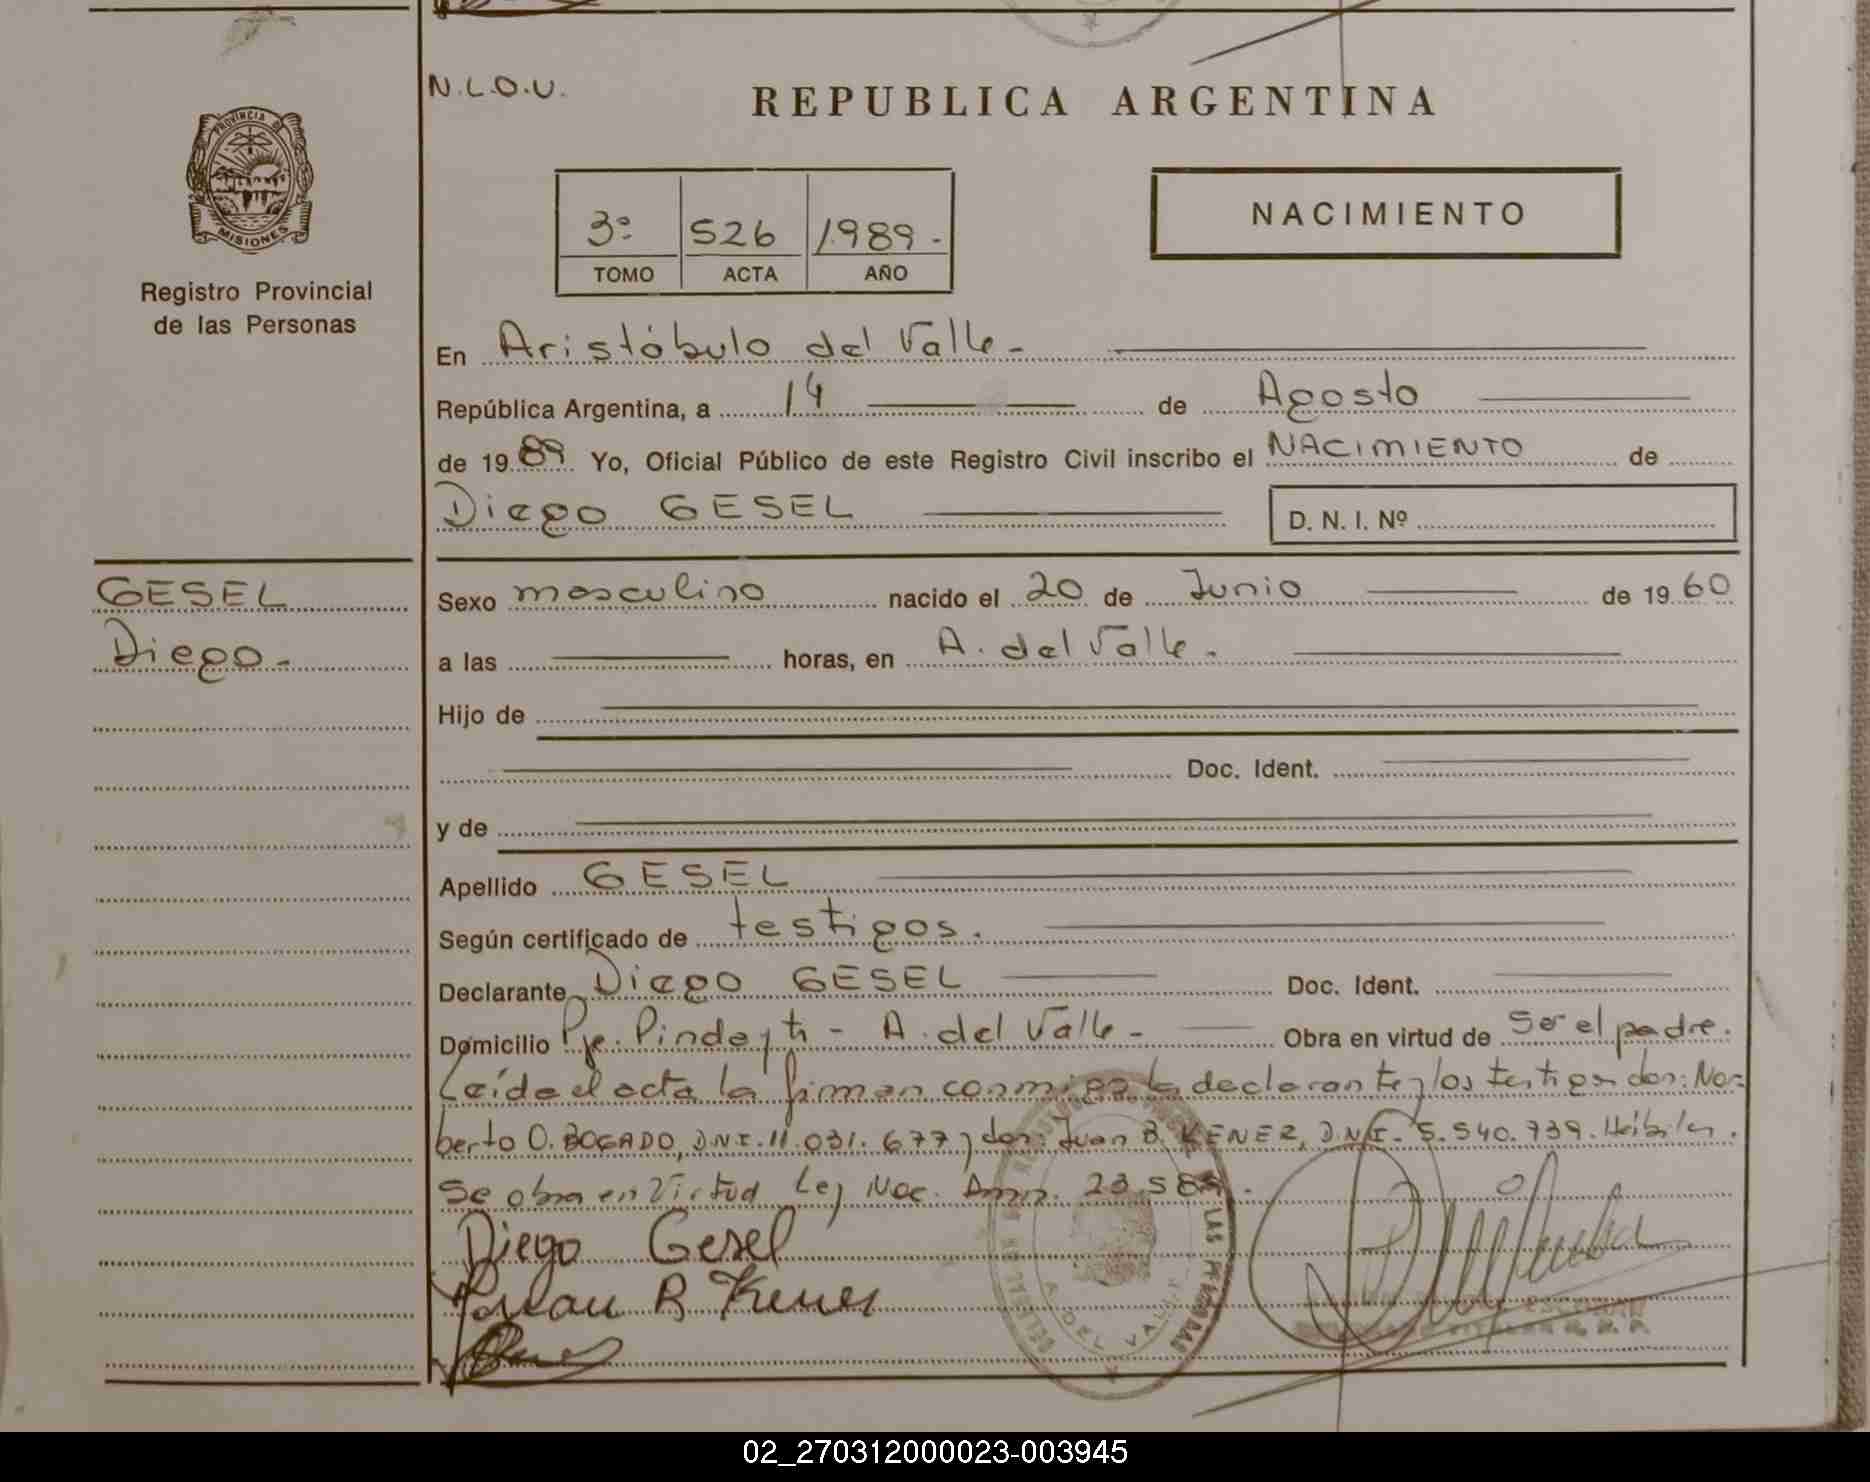 N.L.O.U.
REPUBLICA ARGENTINA
PROVINCIA DE
MISIONES
Registro Provincial
de las Personas
3º 526 1989.-
TOMO ACTA AÑO
NACIMIENTO
En Aristóbulo del Valle.-
República Argentina, a 14 de Agosto
de 1989 Yo, Oficial Público de este Registro Civil inscribo el NACIMIENTO de
Diego GESEL D. N. I. Nº
GESEL
Diego.-
Sexo masculino nacido el 20 de Junio de 1960
a las horas, en A. del Valle.
Hijo de
Doc. Ident.
y de
Apellido GESEL
Según certificado de testigos.
Declarante Diego GESEL Doc. Ident.
Domicilio Pje. Pindayti - A. del Valle - Obra en virtud de ser el padre.
Leída el acta la firman conmigo la declarante y los testigos don: Nor-
berto O. BOGADO, D.N.I. 11.031.677 y don: Juan B. KENER, D.N.I. 5.540.739. Hábiles.
Se obra en Virtud Ley Nac. Amn. 23.5
Diego Gesel
Juan B Kener
A. DEL VALLE
LAS PERSONAS
ESCOBAR
02_270312000023-003945